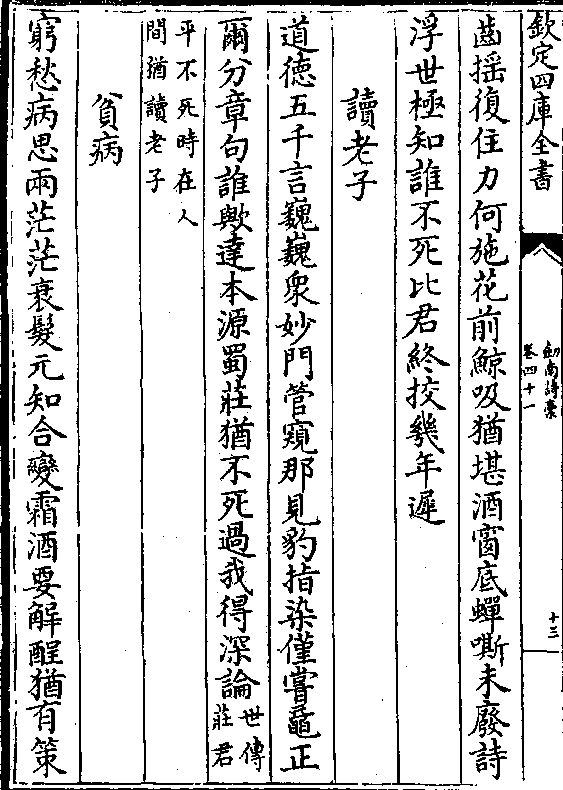 欽定四庫全書
劒南詩藳
卷四十一
十三
齒揺復住力何施花前鯨吸猶堪酒窗底蟬嘶未廢詩
浮世極知誰不死比君終挍幾年遲
讀老子
道德五千言巍巍衆妙門管窺那見豹指染僅嘗黿正
爾分章句誰歟達本源蜀莊猶不死過我得深論世傳
莊君
平不死時在人
間猶讀老子
貧病
窮愁病思兩茫茫衰髮元知合變霜酒要解酲猶有策